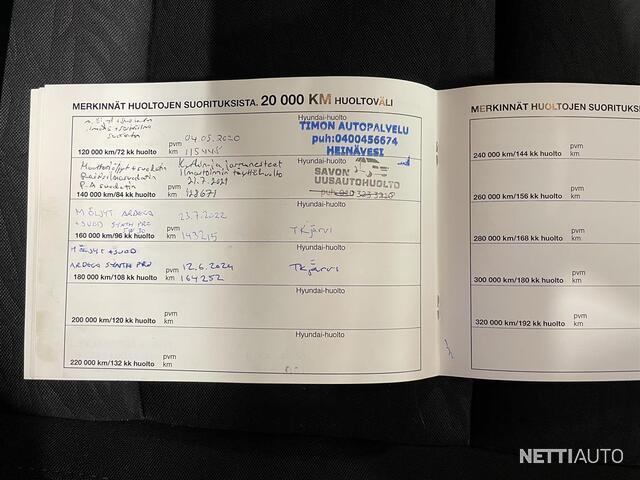 MERKINNÄT HUOLTOJEN SUORITUKSISTA. 20 000 KM HUOLTOVÄLI
120 000 km/72 kk huolto
pvm 04.05.2020
km 115445
Hyundai-huolto
TIMON AUTOPALVELU
puh:0400456674
HEINÄVESI
140 000 km/84 kk huolto
pvm 21.7.2021
km 123671
Hyundai-huolto
SAVON
UUSAUTOHUOLTO
M ÖLJYT ARDECA
+SUOD SYNTH PRO
160 000 km/96 kk huolto
pvm 23.7.2022
km 143215
Hyundai-huolto
TKjärvi
ARDECA SYNTH PRO
180 000 km/108 kk huolto
pvm 12.6.2024
km 164252
Hyundai-huolto
TKjärvi
200 000 km/120 kk huolto
pvm
km
Hyundai-huolto
220 000 km/132 kk huolto
pvm
km
Hyundai-huolto
MERKINNÄT HUOLTOJEN SUORITUKS
240 000 km/144 kk huolto
pvm
km
260 000 km/156 kk huolto
pvm
km
280 000 km/168 kk huolto
pvm
km
300 000 km/180 kk huolto
pvm
km
320 000 km/192 kk huolto
pvm
km
NETTIAUTO